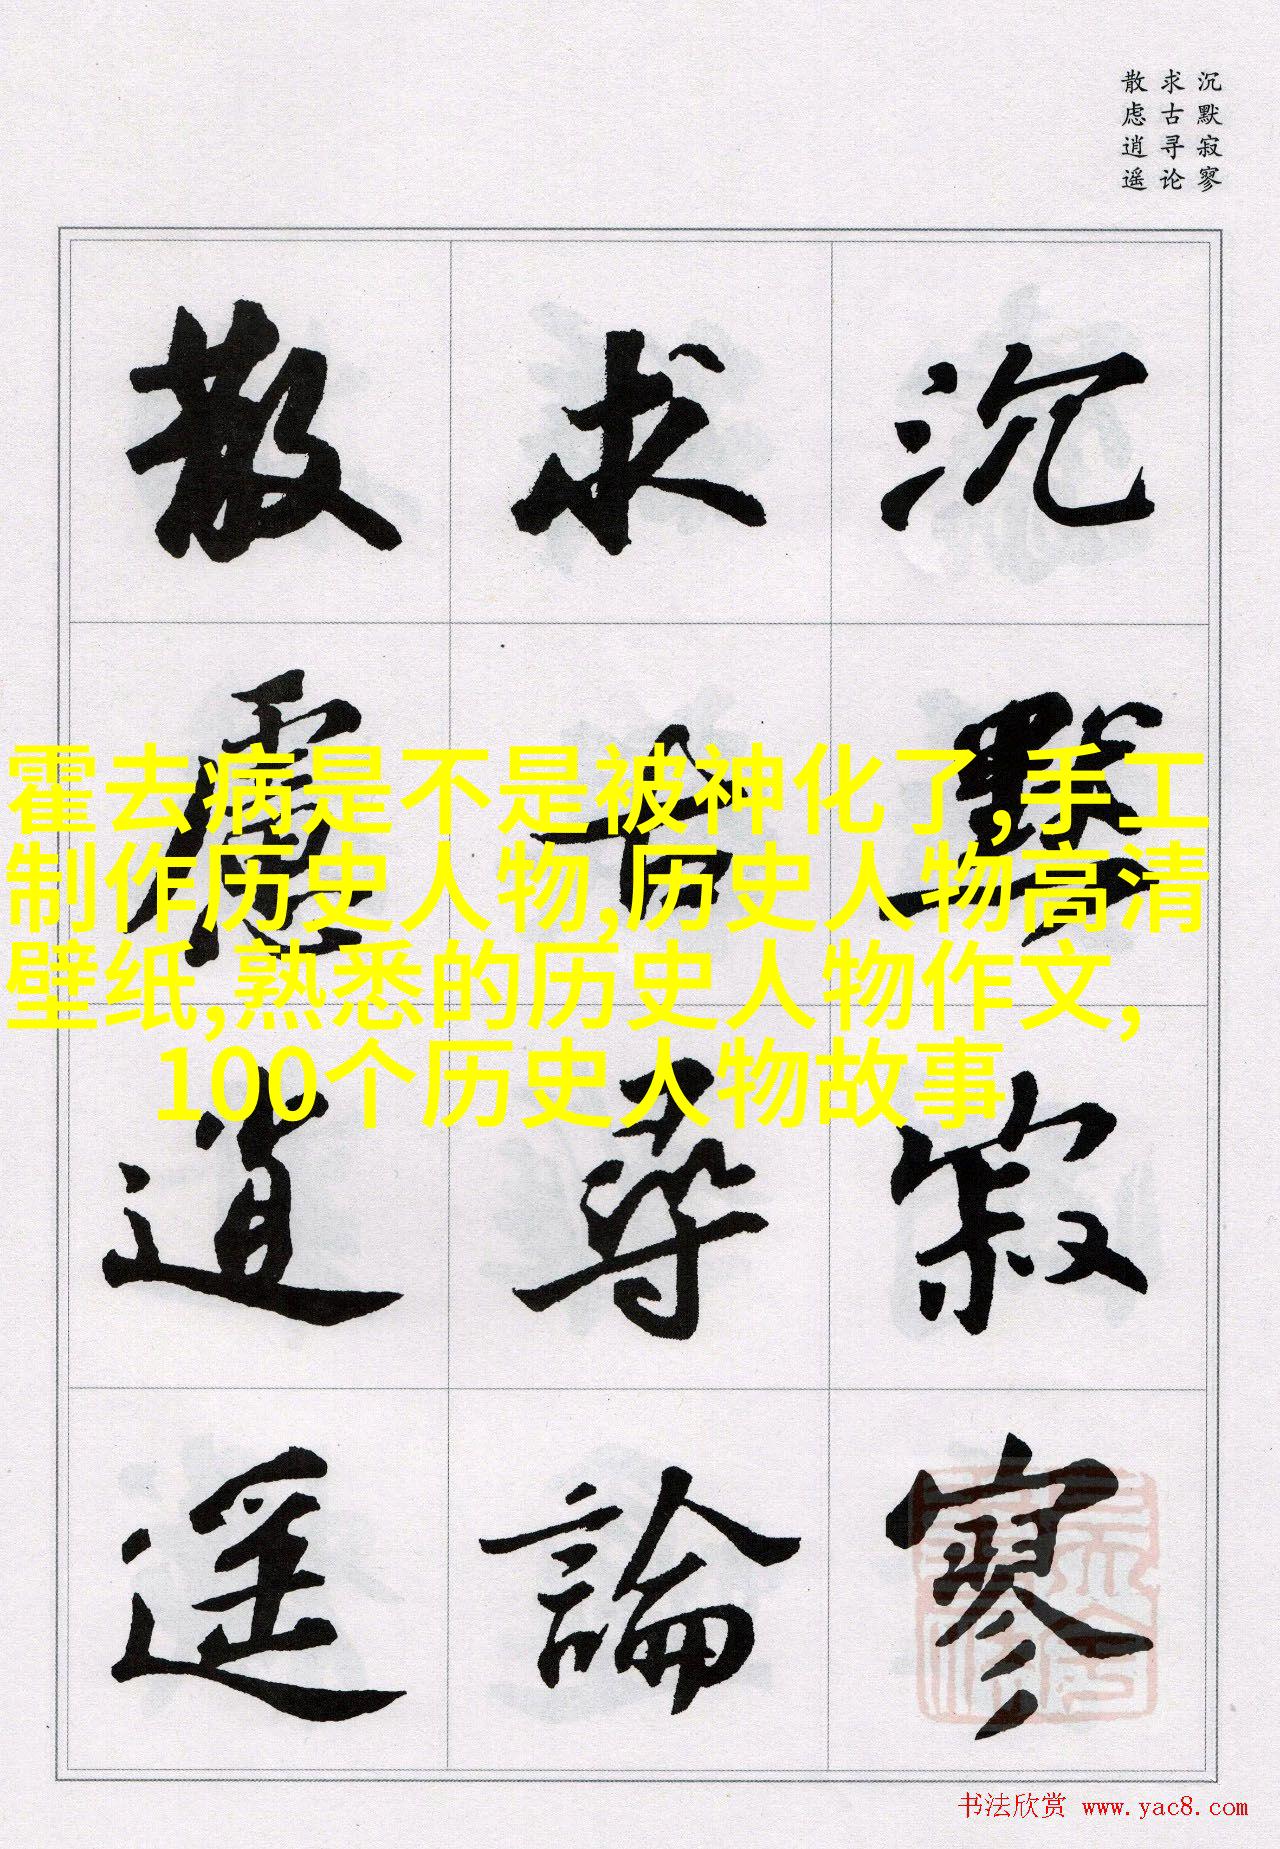 沉默寂寥
求古寻论
散虑逍遥
沉默寂寥
求古尋論
散慮逍遥
霍去病是不是被神化了,手工
制作历史人物,历史人物高清
壁纸,熟悉的历史人物作文,
100个历史人物故事
书法欣赏 www.yac8.com